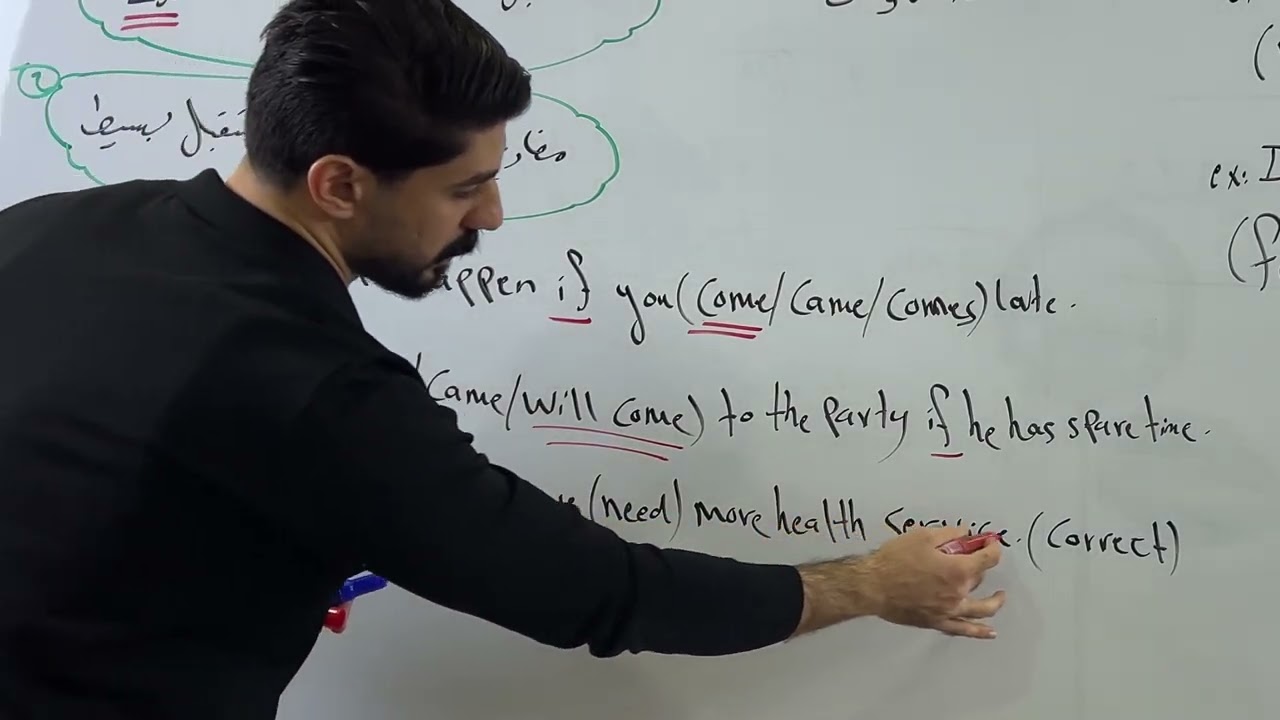 2
بسيط
if you (Come/Came/Comes) late.
Came/will Come) to the party if he has spare time.
(need) more health service. (Correct)
ex: I